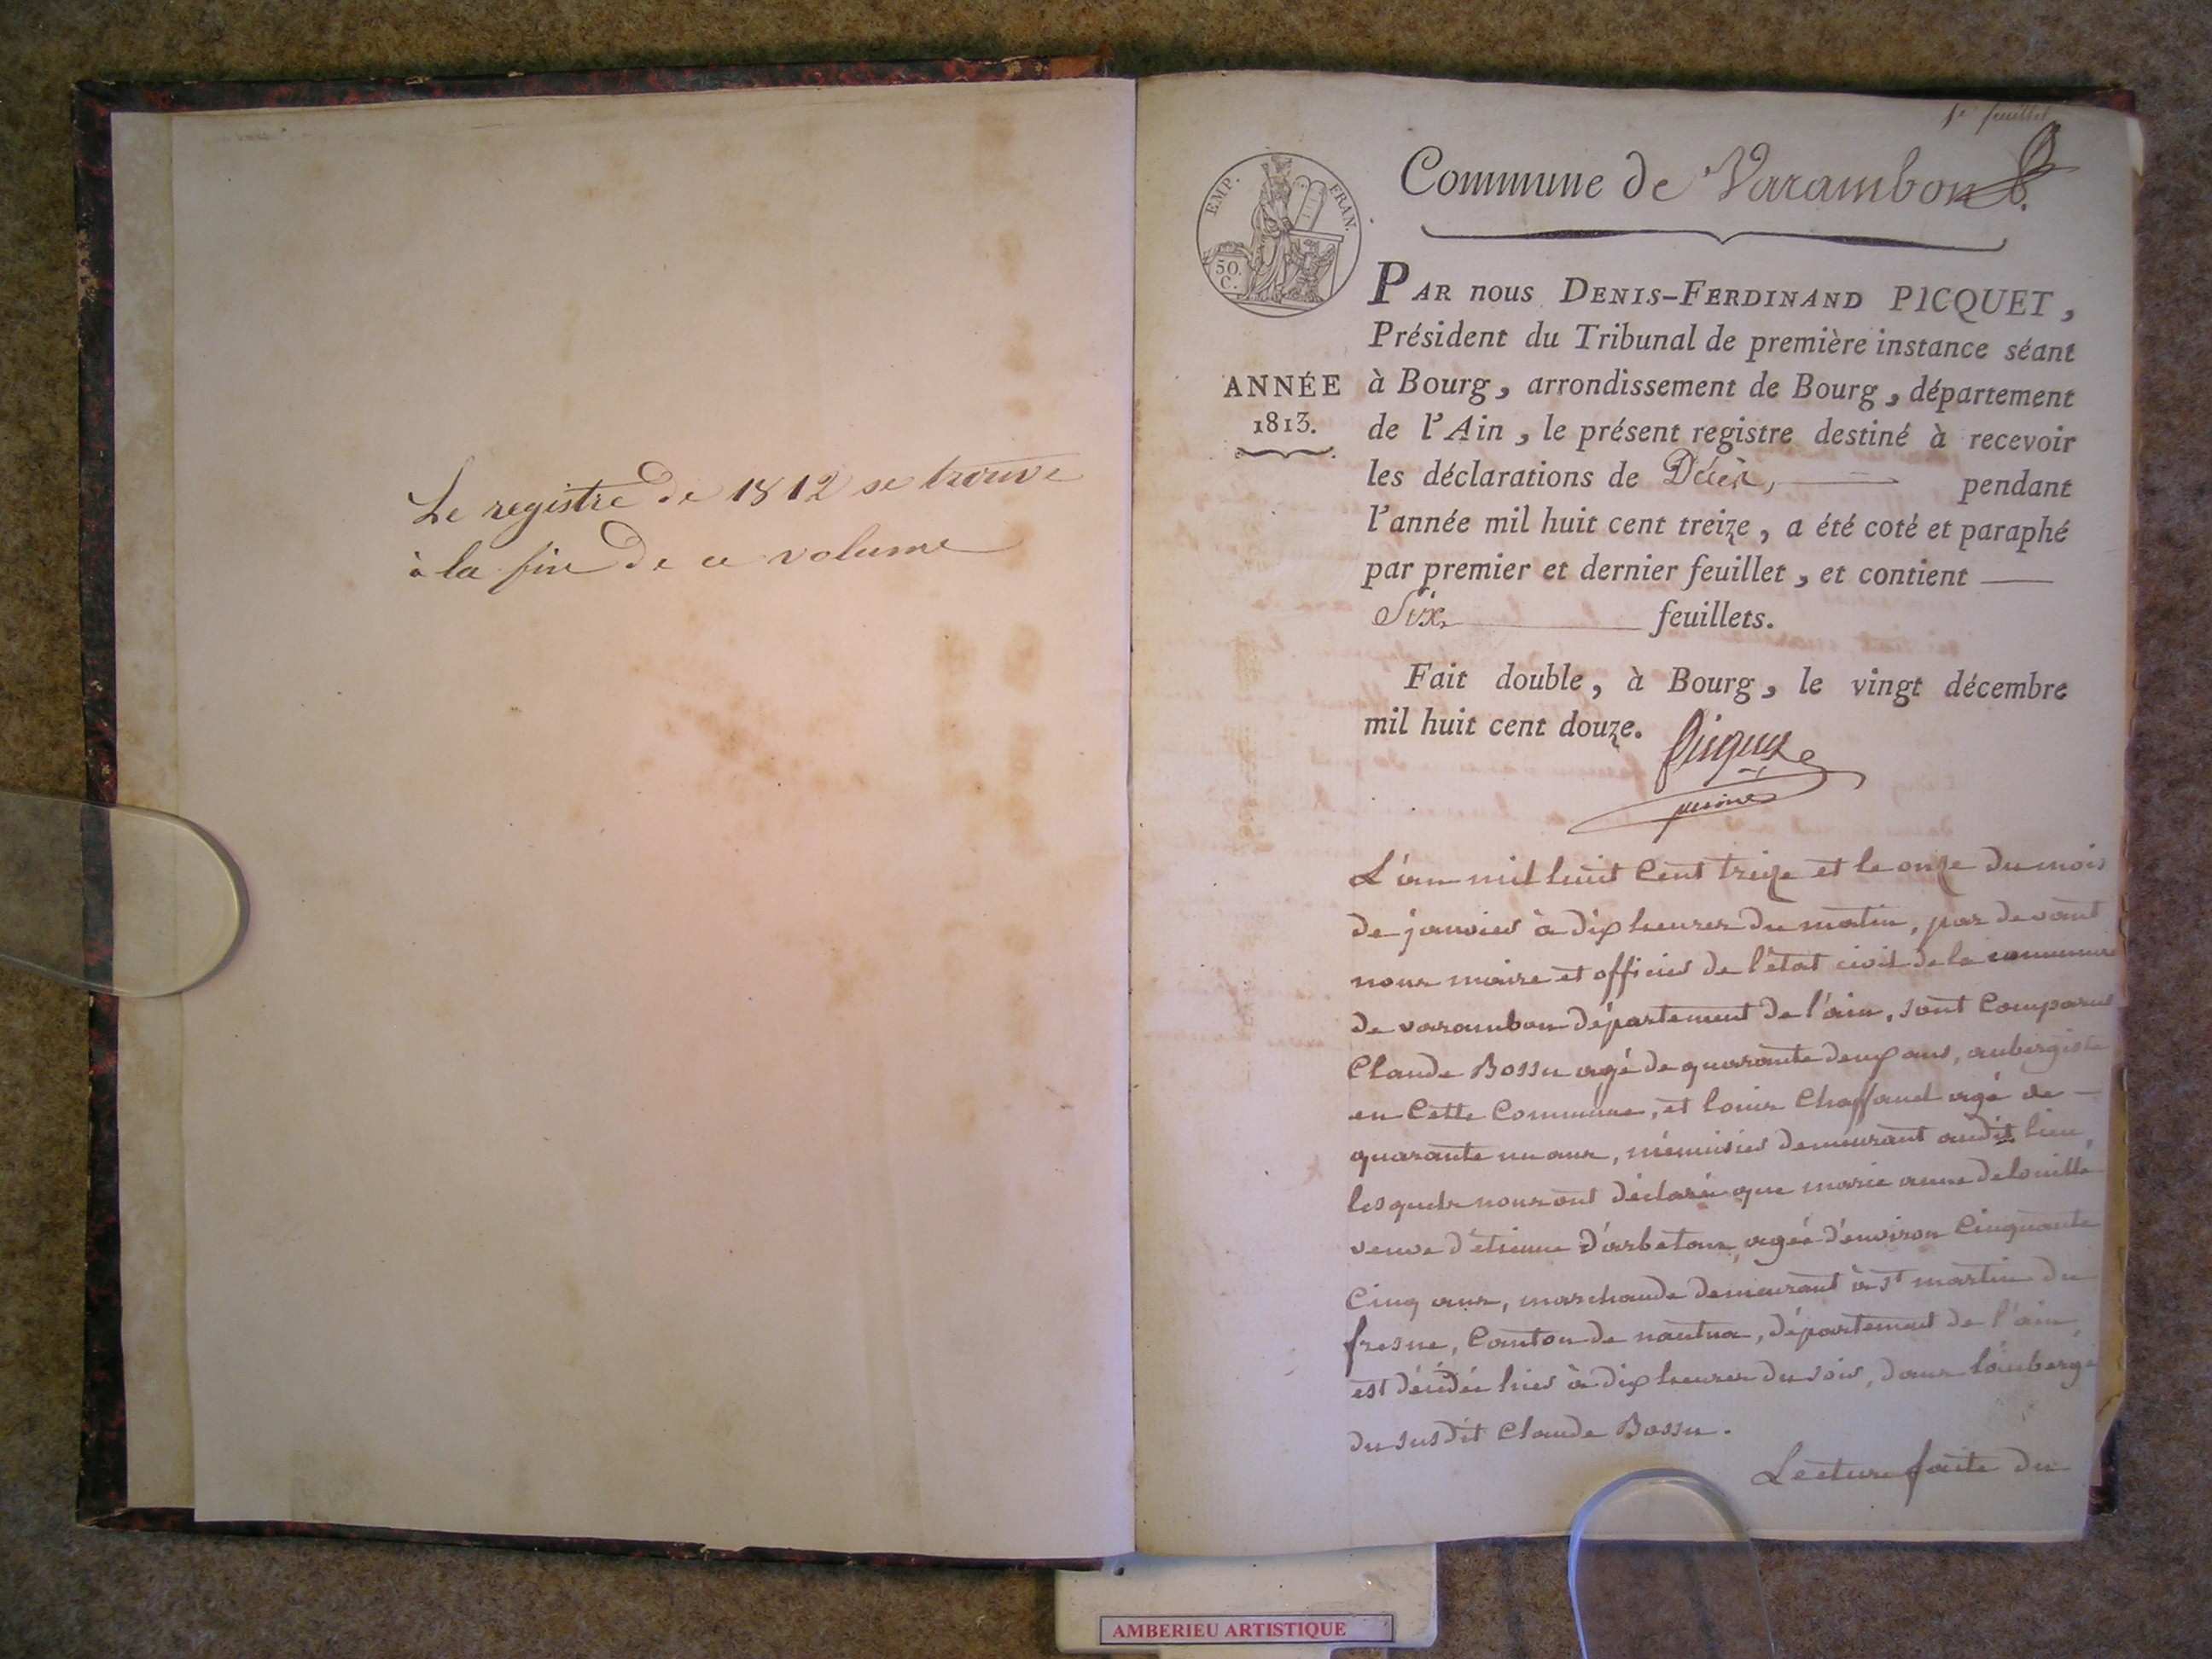 Le registre de 1812 se trouve
à la fin de ce volume
1er feuillet
Commune de Varambon
EMP. FRAN.
50.
C.
PAR nous DENIS-FERDINAND PICQUET,
Président du Tribunal de première instance séant
ANNÉE
1813.
à Bourg, arrondissement de Bourg, département
de l'Ain, le présent registre destiné à recevoir
les déclarations de Décès, pendant
l'année mil huit cent treize, a été coté et paraphé
par premier et dernier feuillet, et contient
Six feuillets.
Fait double, à Bourg, le vingt décembre
mil huit cent douze.
Picquet
L'an mil huit Cent treize et le onze du mois
de janvier à dix heures du matin, par devant
nous maire et officier de l'état civil de la commune
de varambon département de l'ain, sont Comparus
Claude Bossu agé de quarante deux ans, aubergiste
en Cette Commune, et louis Chaffaud agé de
quarante un ans, ménuisier demeurant audit lieu,
lesquels nous ont déclaré que marie anne delouille
veuve d'étienne d'arbetans, agée d'environ Cinquante
Cinq ans, marchande demeurant à st martin du
fresne, Canton de nantua, département de l'ain,
est décédée hier à dix heures du soir, dans l'auberge
du susdit Claude Bossu.
Lecture faite du
AMBERIEU ARTISTIQUE